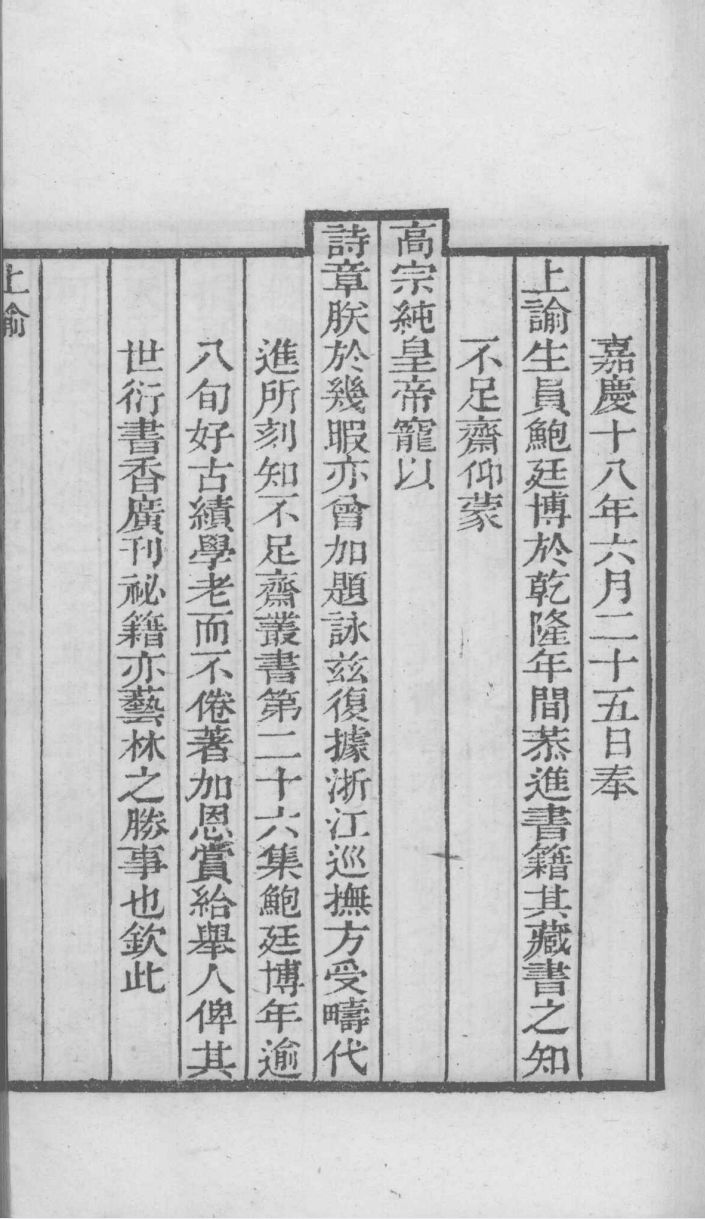 嘉慶十八年六月二十五日奉
上諭生員鮑廷博於乾隆年間恭進書籍其藏書之知
不足齋仰蒙
高宗純皇帝寵以
詩章朕於幾暇亦曾加題詠兹復據浙江巡撫方受疇代
進所刻知不足齋叢書第二十六集鮑廷博年逾
八旬好古績學老而不倦著加恩賞給舉人俾其
世衍書香廣刊祕籍亦藝林之勝事也欽此
上諭